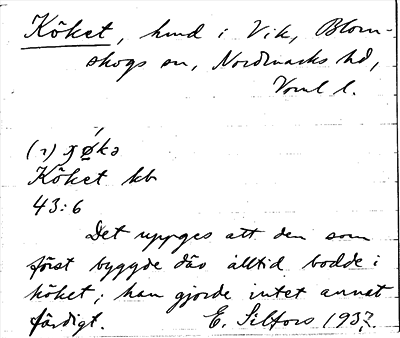 Köket, hmd i Vik, Blom-
skogs sn, Nordmarks hd,
Vrml l.
(1) ɟø̀kə
Köket kb
43:6
Det uppges att den som
först byggde där alltid bodde i
köket; han gjorde intet annat
färdigt. E. Silfors 1937.